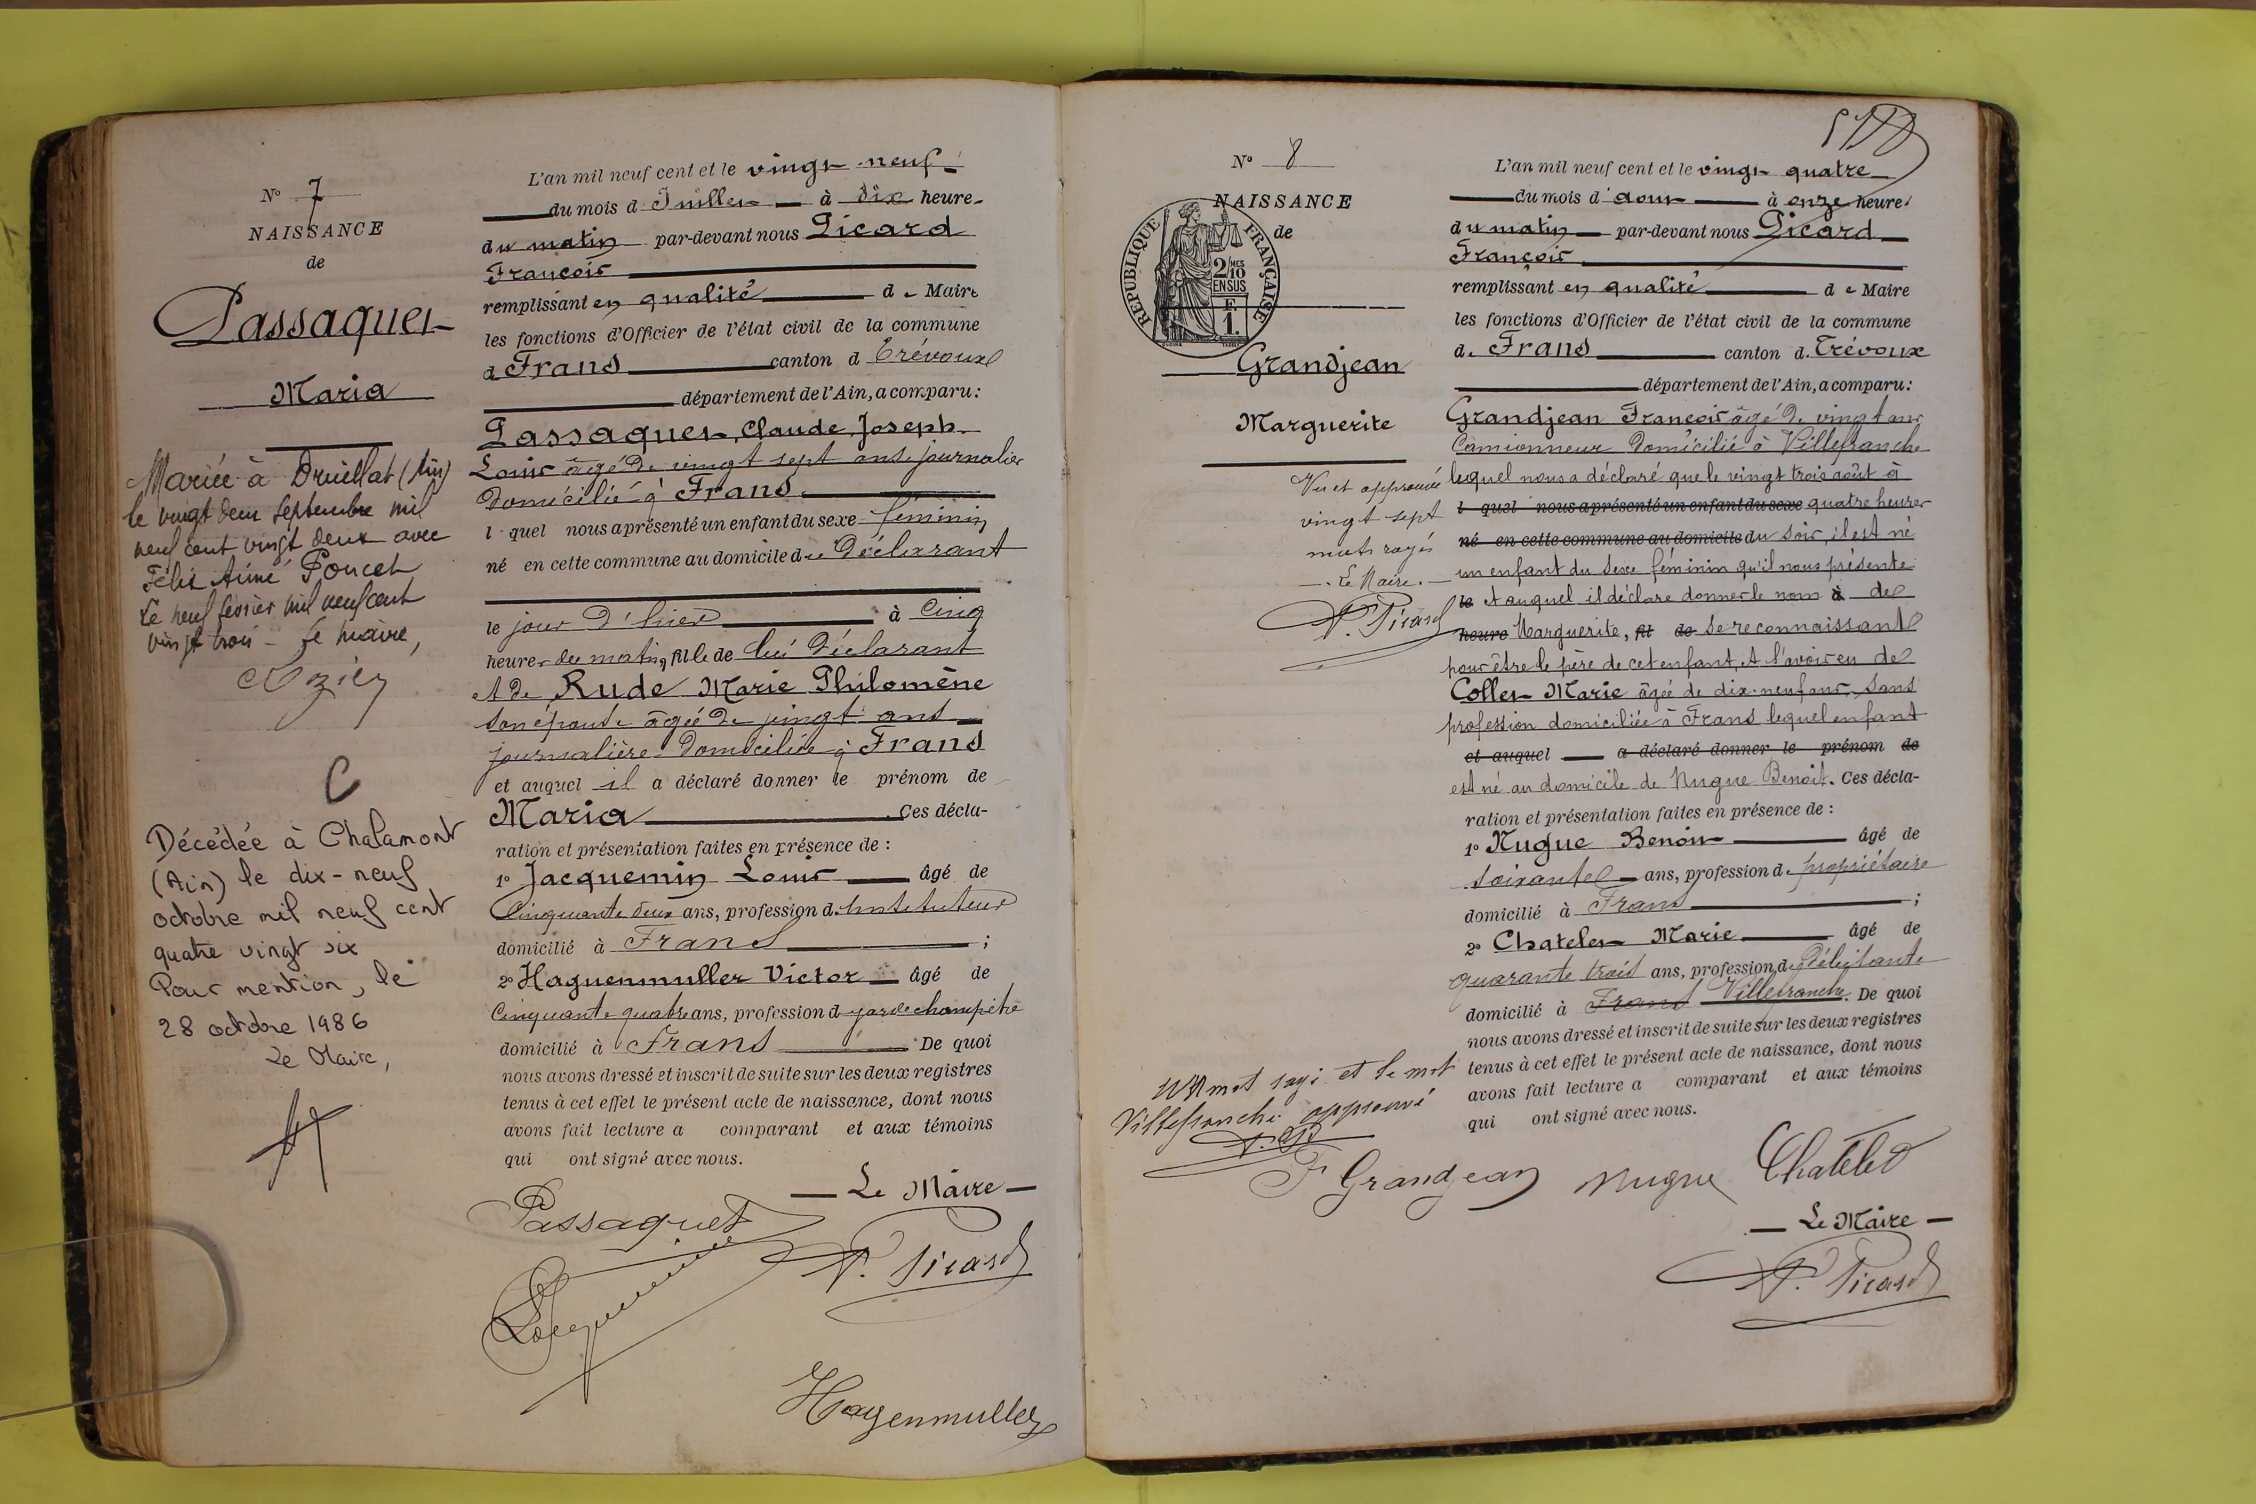 N° 7
NAISSANCE
de
Passaquet
Maria
Mariée à Druillat (Ain)
le vingt deux septembre mil
neuf cent vingt deux avec
Félix Aimé Poncet
Le neuf février mil neuf cent
vingt trois - Le Maire,
C
Décédée à Chalamont
(Ain) le dix-neuf
octobre mil neuf cent
quatre vingt six
Pour mention, le
28 octobre 1986
Le Maire,
L'an mil neuf cent et le vingt-neuf
du mois d Juillet à dix heure
du matin par-devant nous Picard
François
remplissant en qualité de Maire
les fonctions d'Officier de l'état civil de la commune
d Frans canton d Trévoux
département de l'Ain, a comparu:
Passaquet, Claude Joseph
Louis âgé de vingt sept ans, journalier
domicilié à Frans
l quel nous a présenté un enfant du sexe féminin
né en cette commune au domicile du Déclarant
le jour d'hier à cinq
heures du matin, fille de lui Déclarant
et de Rude Marie Philomène
son épouse âgée de vingt ans
journalière domiciliée à Frans
et auquel il a déclaré donner le prénom de
Maria Ces décla-
ration et présentation faites en présence de :
1° Jacquemin Louis âgé de
Cinquante deux ans, profession d'Instituteur
domicilié à Frans ;
2° Haguenmuller Victor âgé de
Cinquante quatre ans, profession d garde champêtre
domicilié à Frans De quoi
nous avons dressé et inscrit de suite sur les deux registres
tenus à cet effet le présent acte de naissance, dont nous
avons fait lecture a comparant et aux témoins
qui ont signé avec nous.
Le Maire
Passaquet
F. Picard
Jacquemin
Hagenmuller
N° 8
NAISSANCE
de
RÉPUBLIQUE FRANÇAISE
2/10 MES
EN SUS
F.
1.
Grandjean
Marguerite
Vu et approuvé
vingt sept
mots rayés
Le Maire.
F. Picard
L'an mil neuf cent et le vingt-quatre
du mois d'août à onze heure
du matin par-devant nous Picard
François
remplissant en qualité de Maire
les fonctions d'Officier de l'état civil de la commune
d. Frans canton d. Trévoux
département de l'Ain, a comparu:
Grandjean François âgé de vingt ans
Camionneur domicilié à Villefranche
lequel nous a déclaré que le vingt trois août à
l quel nous a présenté un enfant du sexe quatre heures
né en cette commune au domicile du soir, il est né
un enfant du sexe féminin qu'il nous présente
le et auquel il déclare donner le nom à de
heure Marguerite, fil de se reconnaissant
pour être le père de cet enfant, et l'avoir eu de
Collet Marie âgée de dix-neuf ans, sans
profession domiciliée à Frans lequel enfant
et auquel a déclaré donner le prénom de
est né au domicile de Nugue Benoit. Ces décla-
ration et présentation faites en présence de :
1° Nugue Benoît âgé de
soixante ans, profession d. propriétaire
domicilié à Frans ;
2° Chatelet Marie âgé de
quarante trois ans, profession d. Débitante
domicilié à Frans Villefranche. De quoi
nous avons dressé et inscrit de suite sur les deux registres
tenus à cet effet le présent acte de naissance, dont nous
avons fait lecture a comparant et aux témoins
qui ont signé avec nous.
mot rayé et le mot
Villefranche approuvé
F Grandjean Nugue Chatelet
Le Maire
F. Picard